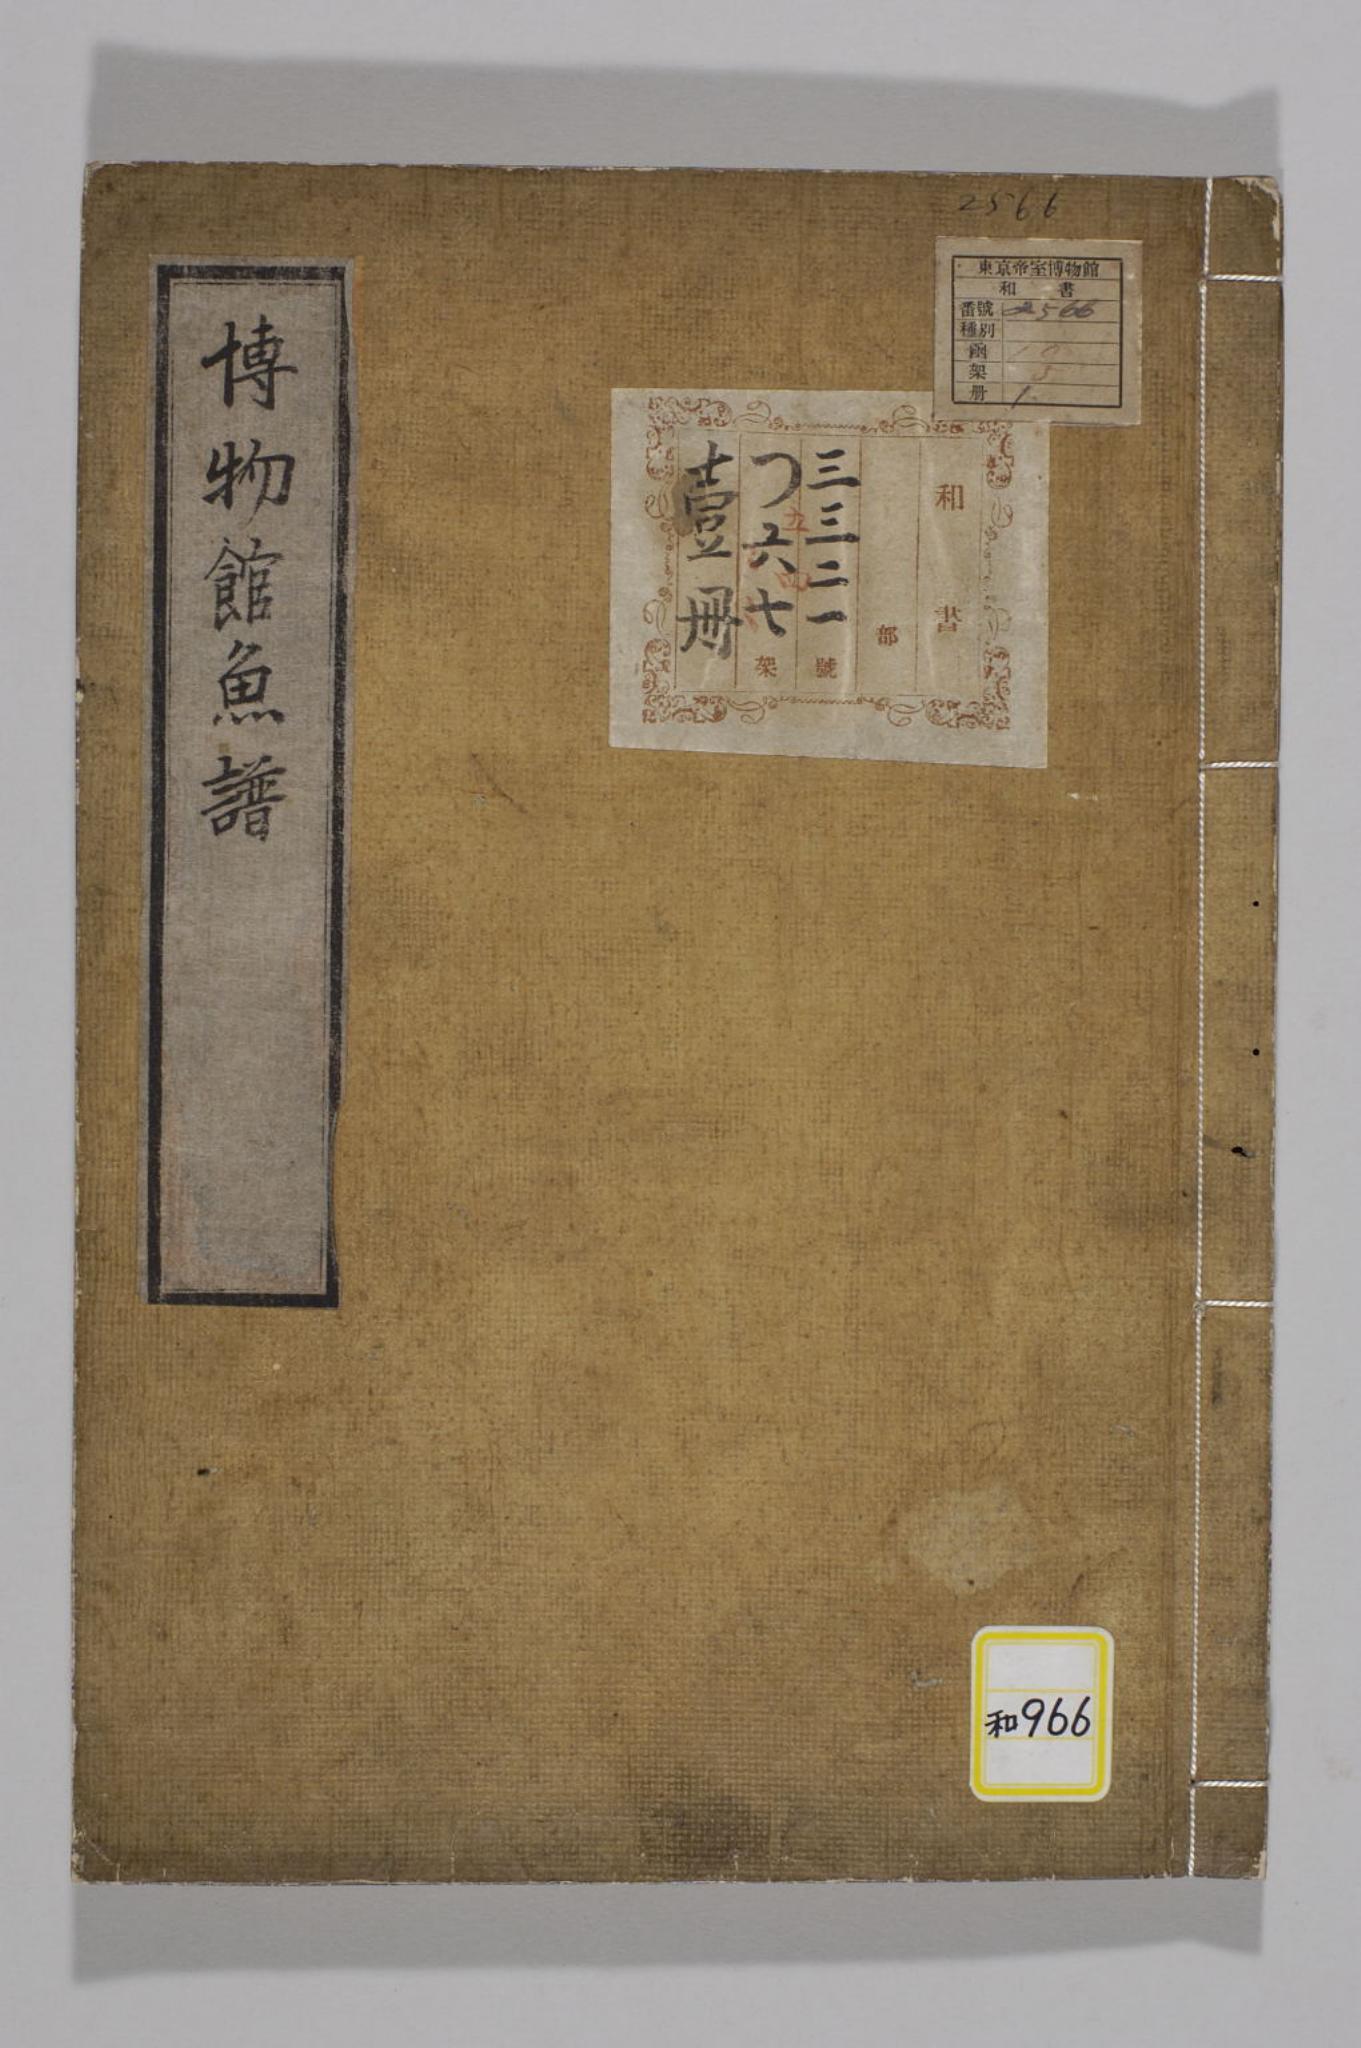 2566
東京帝室博物館
和書
番號 2566
種別
函
架
册 1
和書
部
三三二一號
つ六七架
壹冊
博物館魚譜
和966